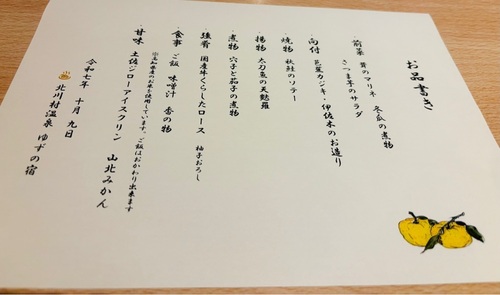 お品書き
・前菜 茸のマリネ 冬瓜の煮物
さつま芋のサラダ
・向付 芭蕉カジキ・伊佐木のお造り
・焼物 秋鮭のソテー
・揚物 太刀魚の天麩羅
・煮物 穴子と茄子の煮物
・強肴 国産牛くらしたロース 柚子おろし
・食事 ご飯 味噌汁 香の物
※高知県産のお米を使用しています。ご飯はおかわり出来ます
・甘味 土佐ジローアイスクリン 山北みかん
令和七年 十月 九日
北川村温泉 ゆずの宿